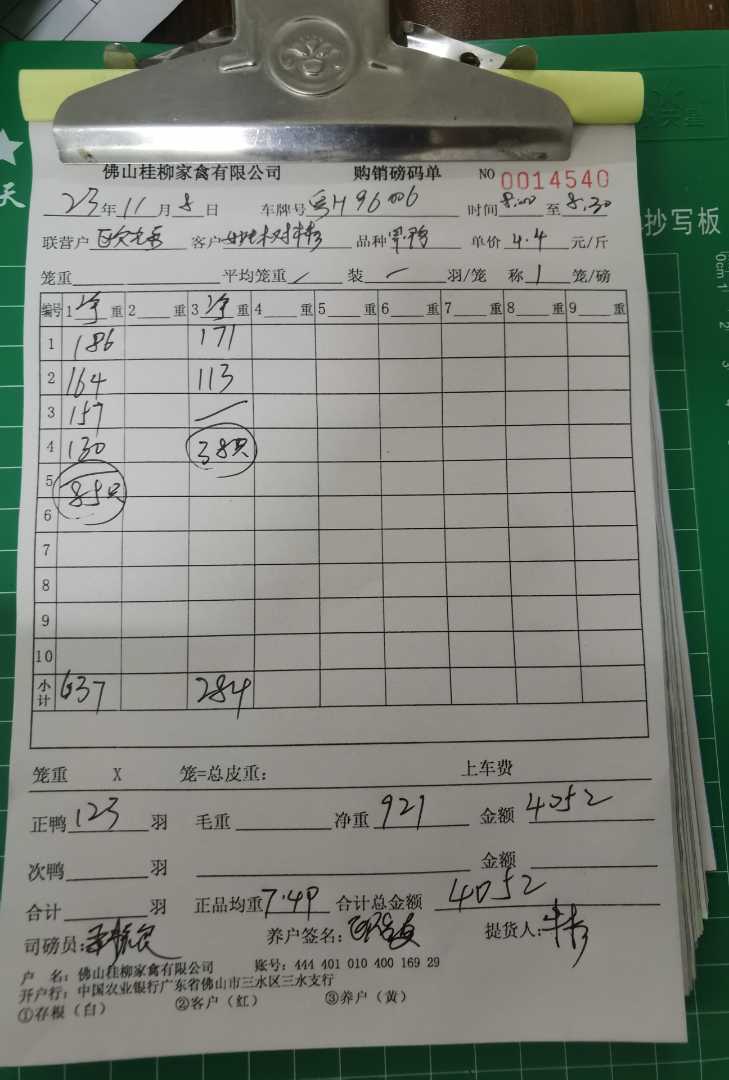 佛山桂柳家禽有限公司 购销磅码单 NO 0014540
23年11月8日 车牌号 粤H96006 时间8:00至8:30
联营户 客户 品种 单价 4.4 元/斤
笼重 平均笼重 / 装 / 羽/笼 称 1 笼/磅
编号 1 净 重 2 重 3 净 重 4 重 5 重 6 重 7 重 8 重 9 重
1 186 171
2 164 113
3 157
4 130 38只
5 85只
6
7
8
9
10
小计 637 284
笼重 X 笼=总皮重: 上车费
正鸭 123 羽 毛重 净重 921 金额 4052
次鸭 羽 金额
合计 羽 正品均重 7.49 合计总金额 4052
司磅员: 养户签名: 提货人:
户 名: 佛山桂柳家禽有限公司 账号: 444 401 010 400 169 29
开户行: 中国农业银行广东省佛山市三水区三水支行
①存根(白) ②客户(红) ③养户(黄)
抄写板
天
0cm 1
2
3